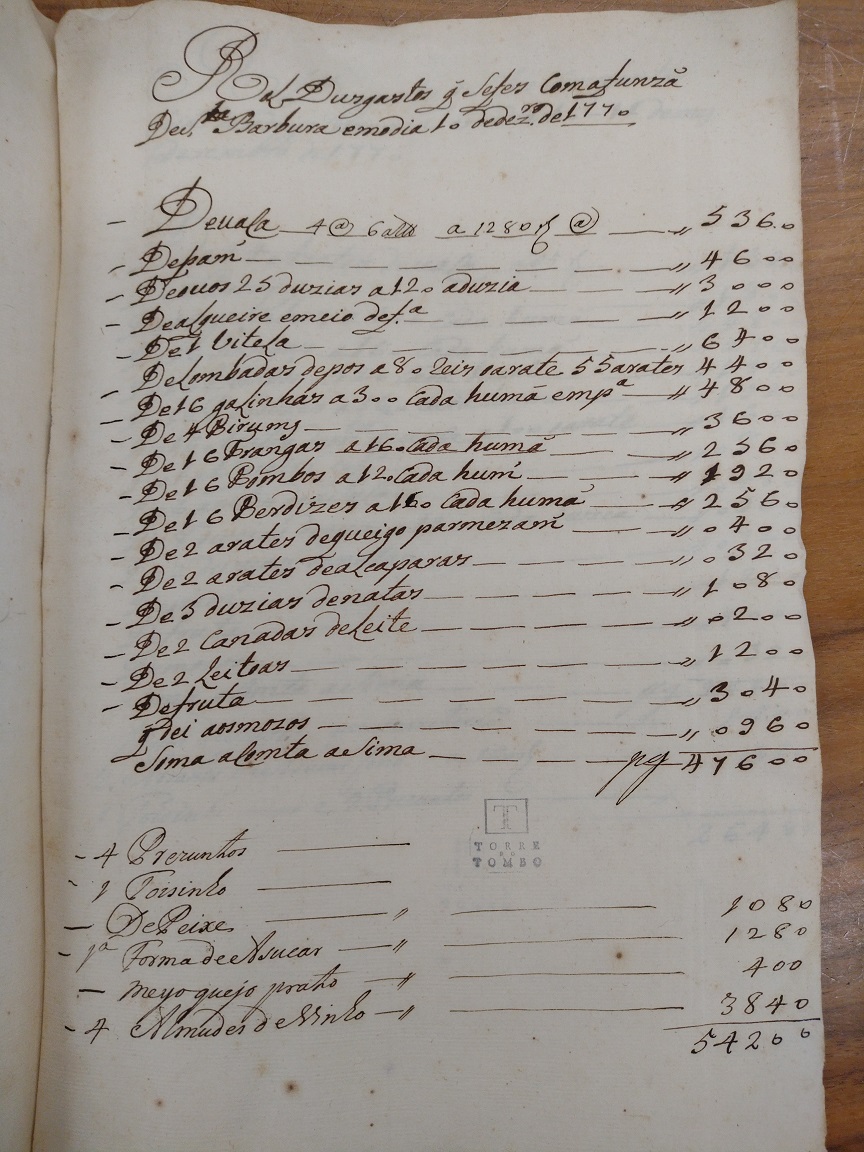 Rol Dusgastos q̃ Sefes Comafunzã
DeS.ta Barbura emodia 10 dedez.ro de1770
– Deuaca 4 @ 6 a 1280 @ — 〃 5360
– Depam — 〃 4600
– Deouos 25 duzias a120 aduzia — 〃 3000
– Dealqueire emeio def.a — 〃 1200
– De1 Vitela — 〃 6400
– Delombadas depos a80 reis oarate 55arates 4400
– De16 galinhas a300 Cada humã emp.a — 〃 4800
– De 4 Pirums — 〃 3600
– De16 Frangas a160 Cada humã — 〃 2560
– De16 Pombos a120 Cada hum — 〃 1920
– De16 Perdizes a160 Cada humã — 〃 2560
– De2 arates dequeigo parmezam — 〃 0400
– De2 arates dealcaparas — 〃 0320
– De3 duzias denatas — 〃 1080
– De2 Canadas deLeite — 〃 0200
– De2 Leitoas — 〃 1200
– Defruta — 〃 3040
q̃ dei aosmozos — 〃 0960
Soma aComta aSima — pg 47600
TORRE
DO
TOMBO
– 4 Prezunhos —
– 1 Toisinho —
– De Peixe — 〃 — 1080
– 1a Forma de Asucar — 〃 — 1280
– meyo quejo prato — 〃 — 400
– 4 Almudes de Vinho — 〃 — 3840
54200